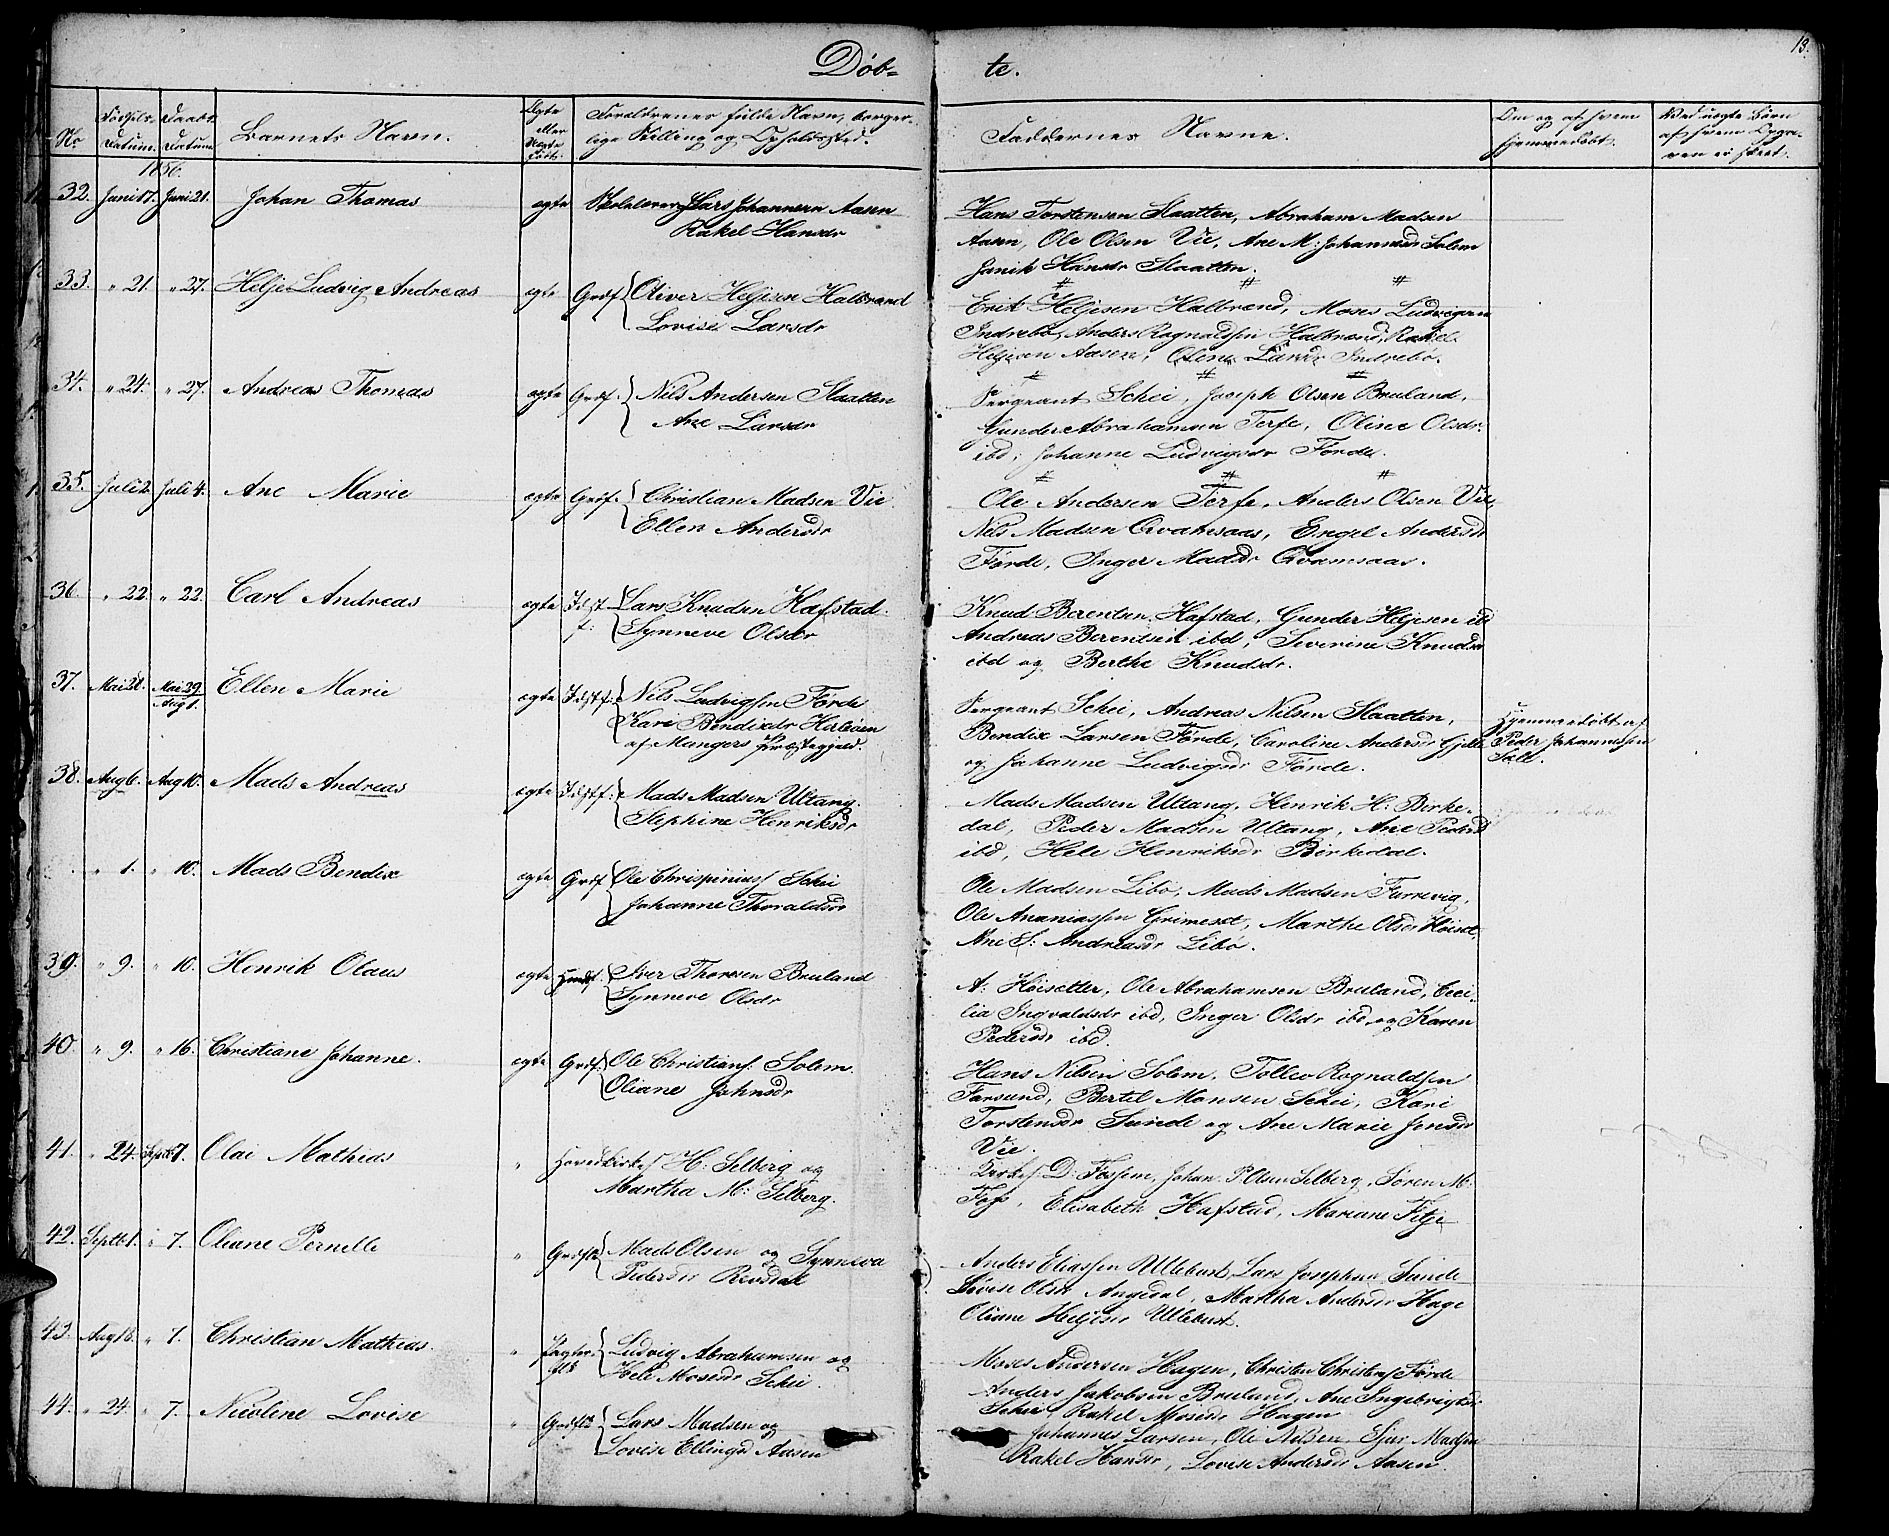 Döb-te.
13.
No
Fødsels-Datum.
Daabs-Datum
Barnets Navn.
Ægte eller Uægte født.
Forældrenes fulde Navn, borger-
lige Stilling og Opholdssted.
Faddernes Navne.
Om og af hvem
hjemmedöbt.
Ved uægte Börn
af hvem Opga-
ven er skeet.
1856.
32. Juni 17. Juni 21. Johan Thomas ægte Skolelærer Lars Johannesen Aasen
Rakel Hansdr
Hans Torstensen Slaatten, Abraham Madsen
Aasen, Ole Olsen Vie, Ane M: Johannesdr Solem
Janik Hansdr Slaatten.
33. " 21 " 27. Helje Ludvig Andreas ægte Grdf. Oliver Heljesen Halbrand
Lovise Larsdr
Erik Heljesen Halbrænd, Moses Ludvigsen
Indrebö, Anders Ragnaldsen Halbrænd, Rakel
Heljesen Aasen, Oline Larsdr Indrebö.
34. " 24. " 27. Andreas Thomas ægte Grdf. Nils Andersen Slaatten
Ane Larsdr
Sergeant Schei, Joseph Olsen Bruland,
Gunder Abrahamsen Terfe, Oline Olsdr.
ibd, Johanne Ludvigsdr Förde.
35. Juli 2. Juli 4. Ane Marie ægte Grdf. Christian Madsen Vie
Ellen Andersdr
Ole Andersen Terfe, Anders Olsen Vie,
Nils Madsen Qvamsaas, Engel Andersdr
Förde, Inger Madsdr Qvamsaas.
36. " 22 " 22. Carl Andreas ægte Lars Knudsen Hafstad
Synneve Olsdr
Knud Berentsen Hafstad, Gunder Heljesen ibd
Andreas Berentsen ibd, Severine Knudsdr
ibd og Berthe Knudsdr.
37. Mai 28. Mai 29 Aug 1. Ellen Marie ægte Nils Ludvigsen Förde
Kari Bendixdr
af Mangers Præstegjeld.
Sergeant Schei, Andreas Nilsen Slaatten,
Bendix Larsen Förde, Caroline Andersdr
og Johanne Ludvigsdr Förde.
Hjemmedöbt af
Peder Johannessen
38. Aug 6. Aug 10. Mads Andreas ægte Mads Madsen Ultang.
Stephine Henriksdr
Mads Madsen Ultang, Henrik H: Birke-
dal, Peder Madsen Ultang, Ane Pedersdr
ibd, Hele Henriksdr Birkedal.
" 1. " 10. Mads Bendix ægte Grdf Ole Chrispinius Schei
Johanne Thoraldsdr
Ole Madsen Libö, Mads Madsen Farsevig,
Ole Ananiassen Grimeset, Marthe Olsdr Höiset,
Ane S: Andreasdr Libö.
39. " 9. " 10. Henrik Olaus ægte Iver Thorsen Bruland
Synneve Olsdr
A: Höisetter, Ole Abrahamsen Bruland, Ceci-
lia Ingvaldsdr ibd, Inger Olsdr ibd og Karen
Pedersdr ibd.
40. " 9. " 16. Christiane Johanne. ægte Grdf. Ole Christians: Solem.
Oliane Johnsdr
Hans Nilsen Solem, Tollev Ragnaldsen
Farsund, Bertel Monsen Schei, Kari
Torstensdr Sunde og Ane Marie Jensdr
Vie.
41. " 24. Septb 7. Olai Mathias " H: Selberg og
Martha M: Selberg.
D: Fossem, Johan P Olsen Selberg, Sören M:
Foss, Elisabeth Hafstad, Mariane Fitje
42. Septb 1. " 7. Oliane Pernelle " Mads Olsen og Synneva
Pedersdr Revsdal
Anders Eliassen Ullebust, Lars Josephsen Sunde
Lovise Olsdr Angedal, Martha Andersdr Hage
Oliane Heljesdr Ullebust.
43. Aug 16. " 7. Christian Mathias. " Ludvig Abrahamsen og
Hele Mosesdr Schei.
Moses Andersen Hagen, Christen Christens Förde
Anders Jakobsen Bruland, Ane Ingebrigtsdr
Schei, Rakel Mosesdr Hagen
44. " 24. " 7. Nicoline Lovise " Lars Madsen og
Lovise Ellingsd Aasen
Johannes Larsen, Ole Nilsen, Sjur Madsen
Rakel Hansdr, Lovise Andersdr Aasen.